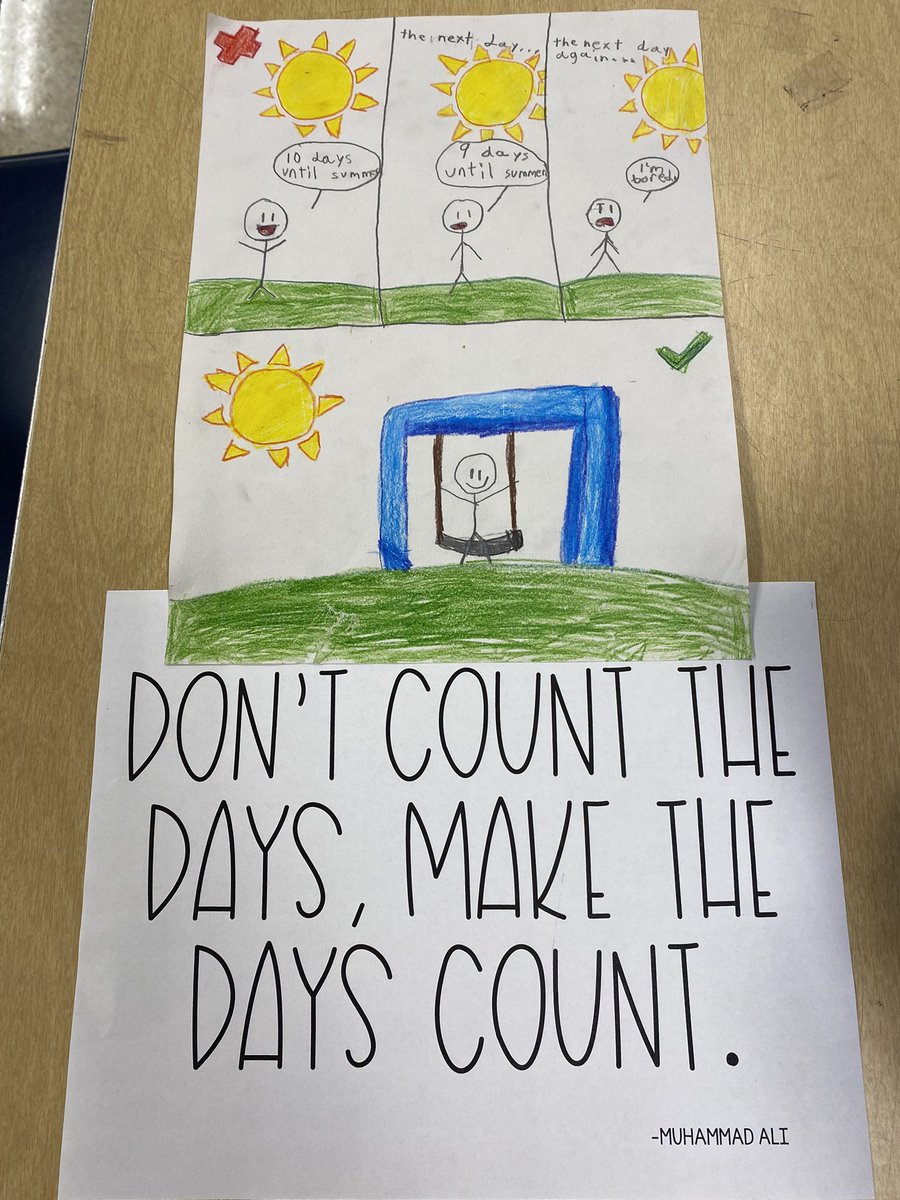 10 days
until summer
the next day...
9 days
until summer
the next day
again....
I'm
bored
DON'T COUNT THE
DAYS, MAKE THE
DAYS COUNT.
-MUHAMMAD ALI